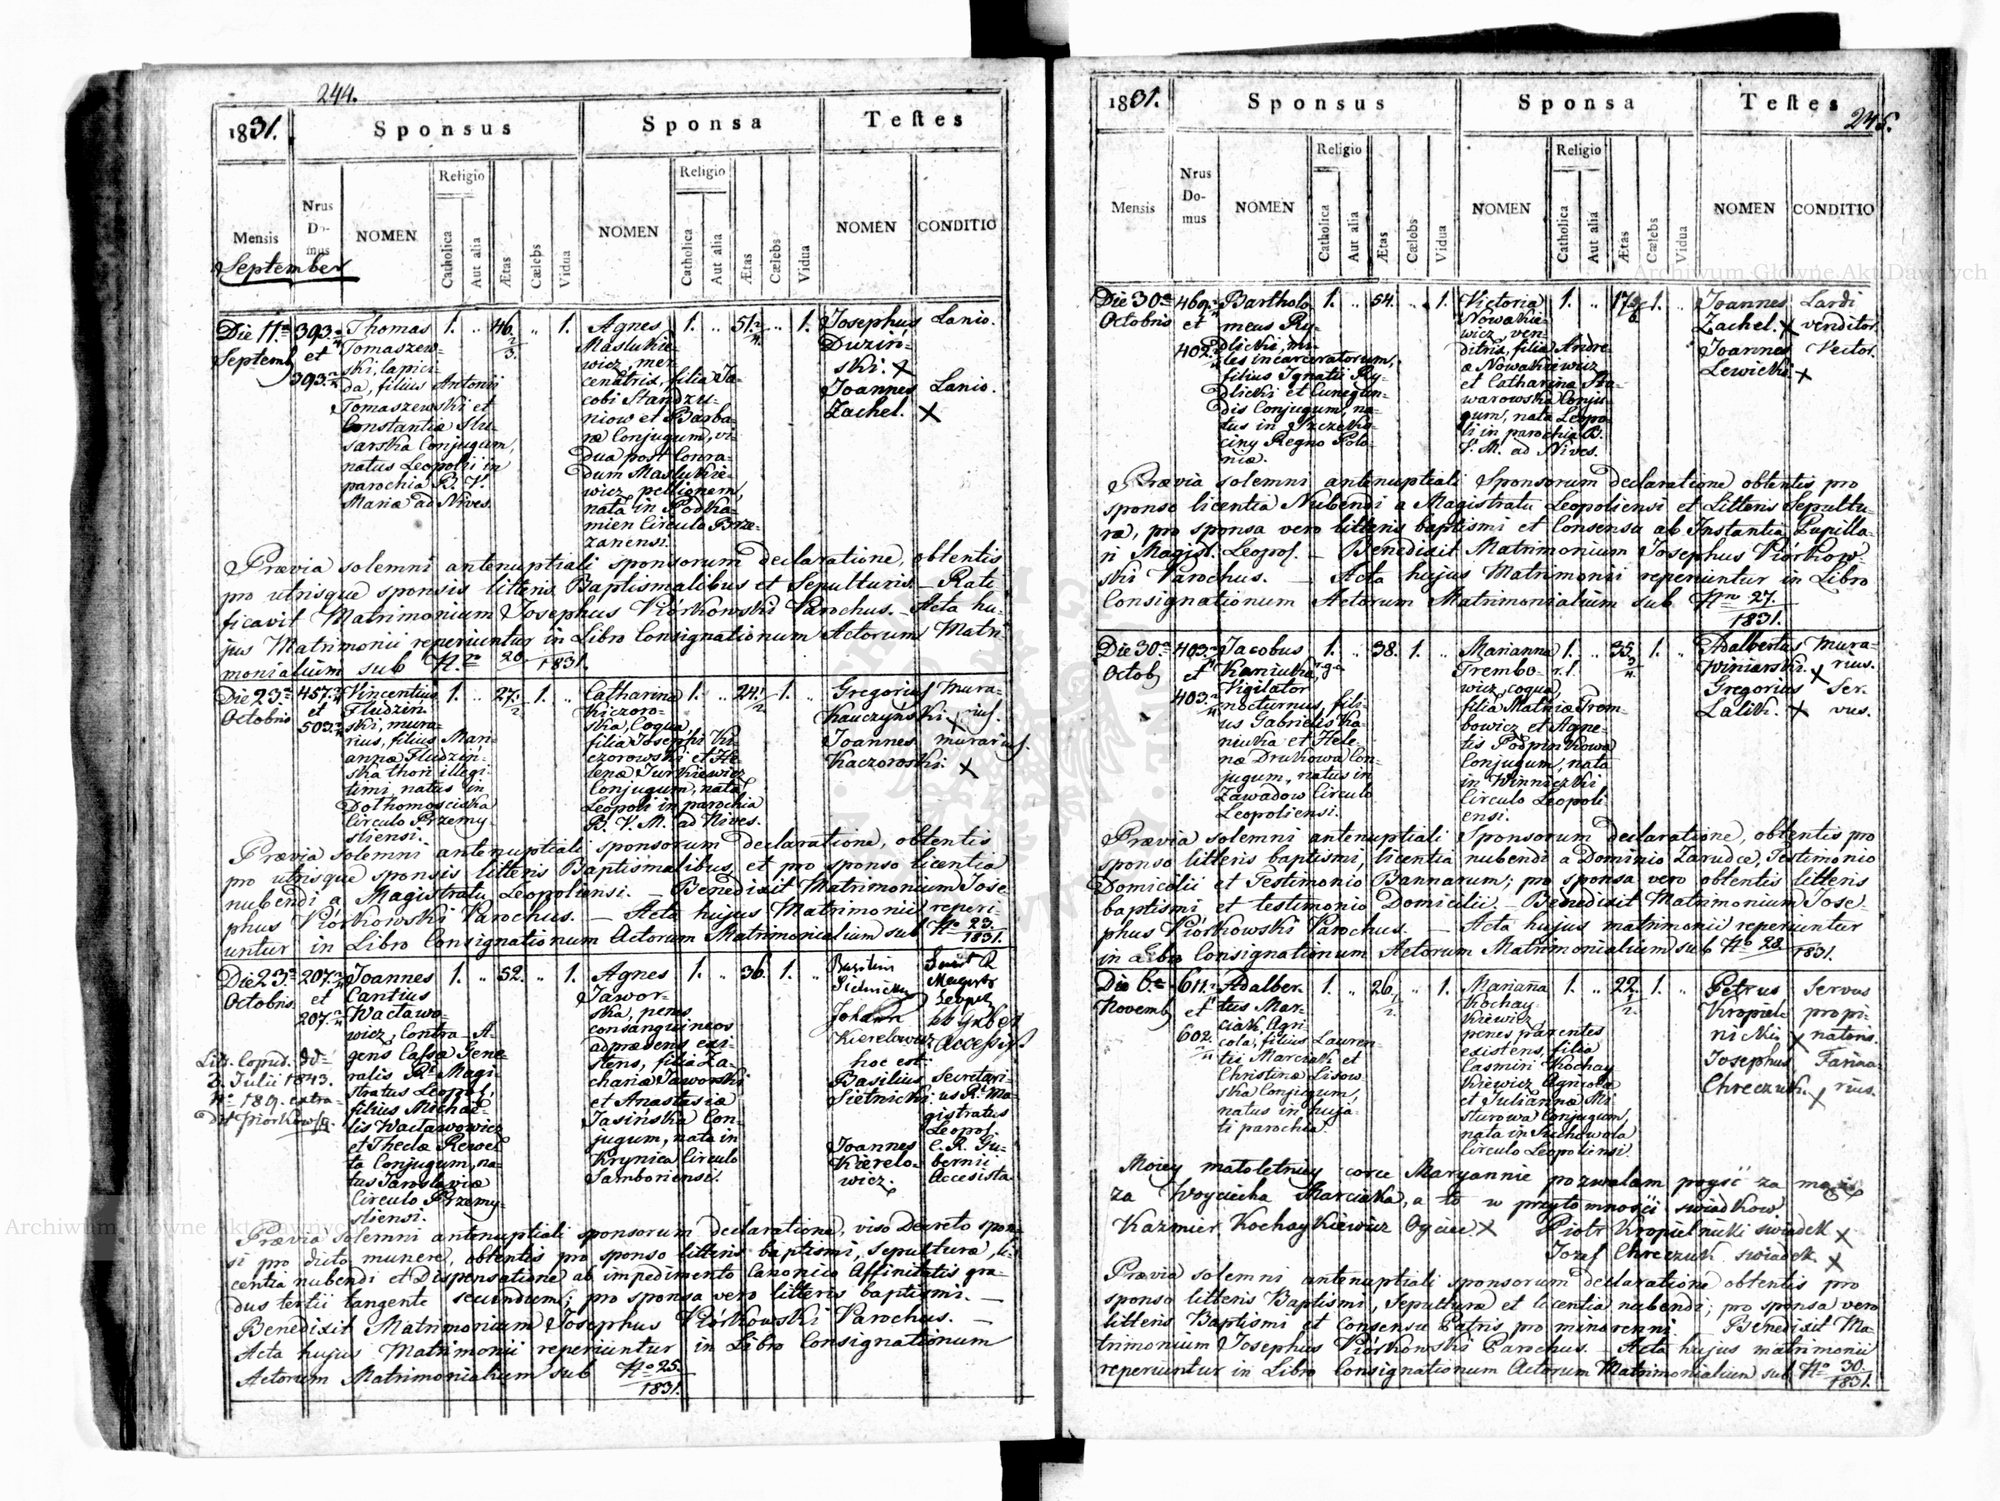 244.
1831. Sponsus Sponsa Teſtes
Religio Religio
Mensis
Nrus
Do-
mus
NOMEN Catholica Aut alia Ætas Cælebs Vidua NOMEN Catholica Aut alia Ætas Cælebs Vidua NOMEN CONDITIO
September
Die 11ª
Septemb
393.
et
393.
Thomas
Tomaszew-
ski, lapici-
da, filius Antonii
Tomaszewski et
Constantiæ Slu-
sarska Conjugum,
natus Leopoli in
parochia B. V.
Mariæ ad Nives.
1. .. 46. .. 1.
Agnes
Maslukie-
wicz, mer-
cenatrix, filia Ja-
cobi Standzu-
niow et Barba-
ræ Conjugum, vi-
dua post Conra-
dum Maslukie-
wicz, pellionem,
nata in Podka-
mien Circulo Brze-
zanensi.
1. .. 51. .. 1.
Josephus Lanio.
Duziń-
ski. X
Joannes Lanio.
Zachel. X
Prævia solemni antenuptiali sponsorum declaratione, obtentis
pro utrisque sponsis litteris Baptismalibus et Sepulturis. – Rati-
ficavit Matrimonium Josephus Wiórkowski Parochus. – Acta hu-
jus Matrimonii reperiuntur in Libro Consignationum Actorum Matri-
monialium sub Nro 20 1831.
Die 23ª
Octobris
457.
et
503.
Vincentius
Fludziń-
ski, mura-
rius, filius Mari-
annæ Fludziń-
ska thori illegi-
timi, natus in
Dothomosciska
Circulo Przemy-
sliensi.
1. .. 27. 1. ..
Catharina
Kiczoro-
ska, Coqua,
filia Josephi Ki-
czorowski et He-
lenæ Jurkiewicz
Conjugum, nata
Leopoli in parochia
B. V. M. ad Nives.
1. .. 24. 1. ..
Gregorius Mura-
Kauczyński rius.
X
Joannes murarius.
Kaczoroski. X
Prævia solemni antenuptiali sponsorum declaratione, obtentis
pro utrisque sponsis litteris Baptismalibus, et pro sponso licentia
nubendi a Magistratu Leopoliensi. – Benedixit Matrimonium Jose-
phus Wiórkowski Parochus. – Acta hujus Matrimonii reperi-
untur in Libro Consignationum Actorum Matrimonialium sub Nro 23.
1831.
Die 23ª
Octobris
207.
et
207.
Litt. Copul. dd-
2. Julii 1843.
Nro 189. extra-
dit Piorkowski.
Joannes
Cantius
Waclawo-
wicz, Contra-A-
gens Cassæ Gene-
ralis R. Magi-
stratus Leopol.,
filius Michae-
lis Waclawowicz
et Theclæ Rewel-
ta Conjugum, na-
tus Jaroslaviæ
Circulo Przemy-
sliensi.
1. .. 52. .. 1.
Agnes
Jawor-
ska, penes
consanguineos
adprædens exi-
stens, filia Za-
chariæ Jaworski
et Anastasia
Jasińska Con-
jugum, nata in
Krynica Circulo
Samboriensi.
1. .. 36. 1. ..
Johann
Kierelowicz Accessist
hoc est:
Basilius Secretari-
Sietnicki. us R. Ma-
gistratus
Leopol.
Joannes C. R. Gu-
Kierelo- bernii
wicz. Accesista
Prævia solemni antenuptiali sponsorum declaratione, viso Decreto spon-
si pro dicto munere, obtentis pro sponso litteris baptismi, Sepulturæ, li-
centia nubendi et Dispensatione ab impedimento Canonico Affinitatis gra-
dus tertii tangente secundum; pro sponsa vero litteris baptismi. –
Benedixit Matrimonium Josephus Wiórkowski Parochus. –
Acta hujus Matrimonii reperiuntur in Libro Consignationum
Actorum Matrimonialium sub Nro 25.
1831.
245.
1831. Sponsus Sponsa Teſtes
Religio Religio
Mensis
Nrus
Do-
mus
NOMEN Catholica Aut alia Ætas Cælebs Vidua NOMEN Catholica Aut alia Ætas Cælebs Vidua NOMEN CONDITIO
Die 30ª
Octobris
469.
et
402.
Bartholo-
meus Ry-
dlicki, mi-
les incarceratorum,
filius Ignatii Ry-
dlicki et Cunegun-
dis Conjugum, na-
tus in Szczeko-
ciny Regno Polo-
niæ.
1. .. 54. .. 1.
Victoria
Nowakie-
wicz, ven-
ditrix, filia Andre-
æ Nowakiewicz
et Catharina Sta-
warowska Conju-
gum, nata Leopo-
li in parochia B.
V. M. ad Nives.
1. .. 17. 1. ..
Joannes Lardi
Zachel. X venditor.
Joannes Vector.
Lewicki. X
Prævia solemni antenuptiali Sponsorum declaratione obtentis pro
sponso licentia Nubendi a Magistratu Leopoliensi et Litteris Sepultu-
ræ, pro sponsa vero litteris baptismi et Consensu ab Instantia Pupilla-
ri Magist. Leopol. – Benedixit Matrimonium Josephus Wiórkow-
ski Parochus. – Acta hujus Matrimonii reperiuntur in Libro
Consignationum Actorum Matrimonialium sub Nro 27.
1831.
Die 30ª
Octob
403.
et
403.
Jacobus
Kaniuka, r.g.
Vigilator
nocturnus, fili-
us Gabrielis Ka-
niuka et Hele-
næ Drukowa Con-
jugum, natus in
Zawadow Circulo
Leopoliensi.
1. .. 38. 1. ..
Marianna
Trembo- r.l.
wicz, coqua,
filia Mathiæ Trem-
bowicz et Agne-
tis Podpinkowa
Conjugum, nata
in Winniczki
Circulo Leopoli-
ensi.
1. .. 35. 1. ..
Adalbertus Mura-
Winiarski. X rius.
Gregorius Ser-
Lalik. X vus.
Prævia solemni antenuptiali Sponsorum declaratione, obtentis pro
sponso litteris baptismi, licentia nubendi a Dominio Zarudce, Testimonio
Domicilii et Testimonio Bannarum; pro sponsa vero obtentis litteris
baptismi et testimonio Domicilii. – Benedixit Matrimonium Jose-
phus Wiórkowski Parochus. – Acta hujus matrimonii reperiuntur
in Libro Consignationum Actorum Matrimonialium sub Nro 28. 1831.
Die 6ª
Novemb
611.
et
602.
Adalber-
tus Mar-
ciak, Agri-
cola, filius Lauren-
tii Marciak et
Christinæ Lisow-
ska Conjugum,
natus in huja-
ti parochia.
1. .. 26. .. 1.
Marianna
Kochay-
kiewicz,
penes parentes
existens, filia
Casmiri Kochay-
kiewicz Agricolæ
et Juliannæ Mi-
sturowa Conjugum,
nata in Sichowola
Circulo Leopoliensi.
1. .. 22. 1. ..
Petrus Servus
Kropiel- propi-
nicki X natoris.
Josephus Farina-
Chreczuk. X rius.
Moiey małoletniey corce Maryannie pozwalam poyść za mąż
za Woyciecha Marciaka, a to w przytomności świadków.
Kazmier Kochaykiewicz Oyciec X Piotr Kropielnicki swiadek X
Jozef Chreczuk swiadek X
Prævia solemni antenuptiali sponsorum declaratione obtentis pro
sponso litteris Baptismi, Sepulturæ et licentia nubendi; pro sponsa vero
litteris Baptismi et Consensu Patris pro minorenni. – Benedixit Ma-
trimonium Josephus Wiórkowski Parochus. – Acta hujus matrimonii
reperiuntur in Libro Consignationum Actorum Matrimonialium sub Nro 30.
1831.
Archiwum Główne Akt Dawnych
Archiwum Główne Akt Dawnych